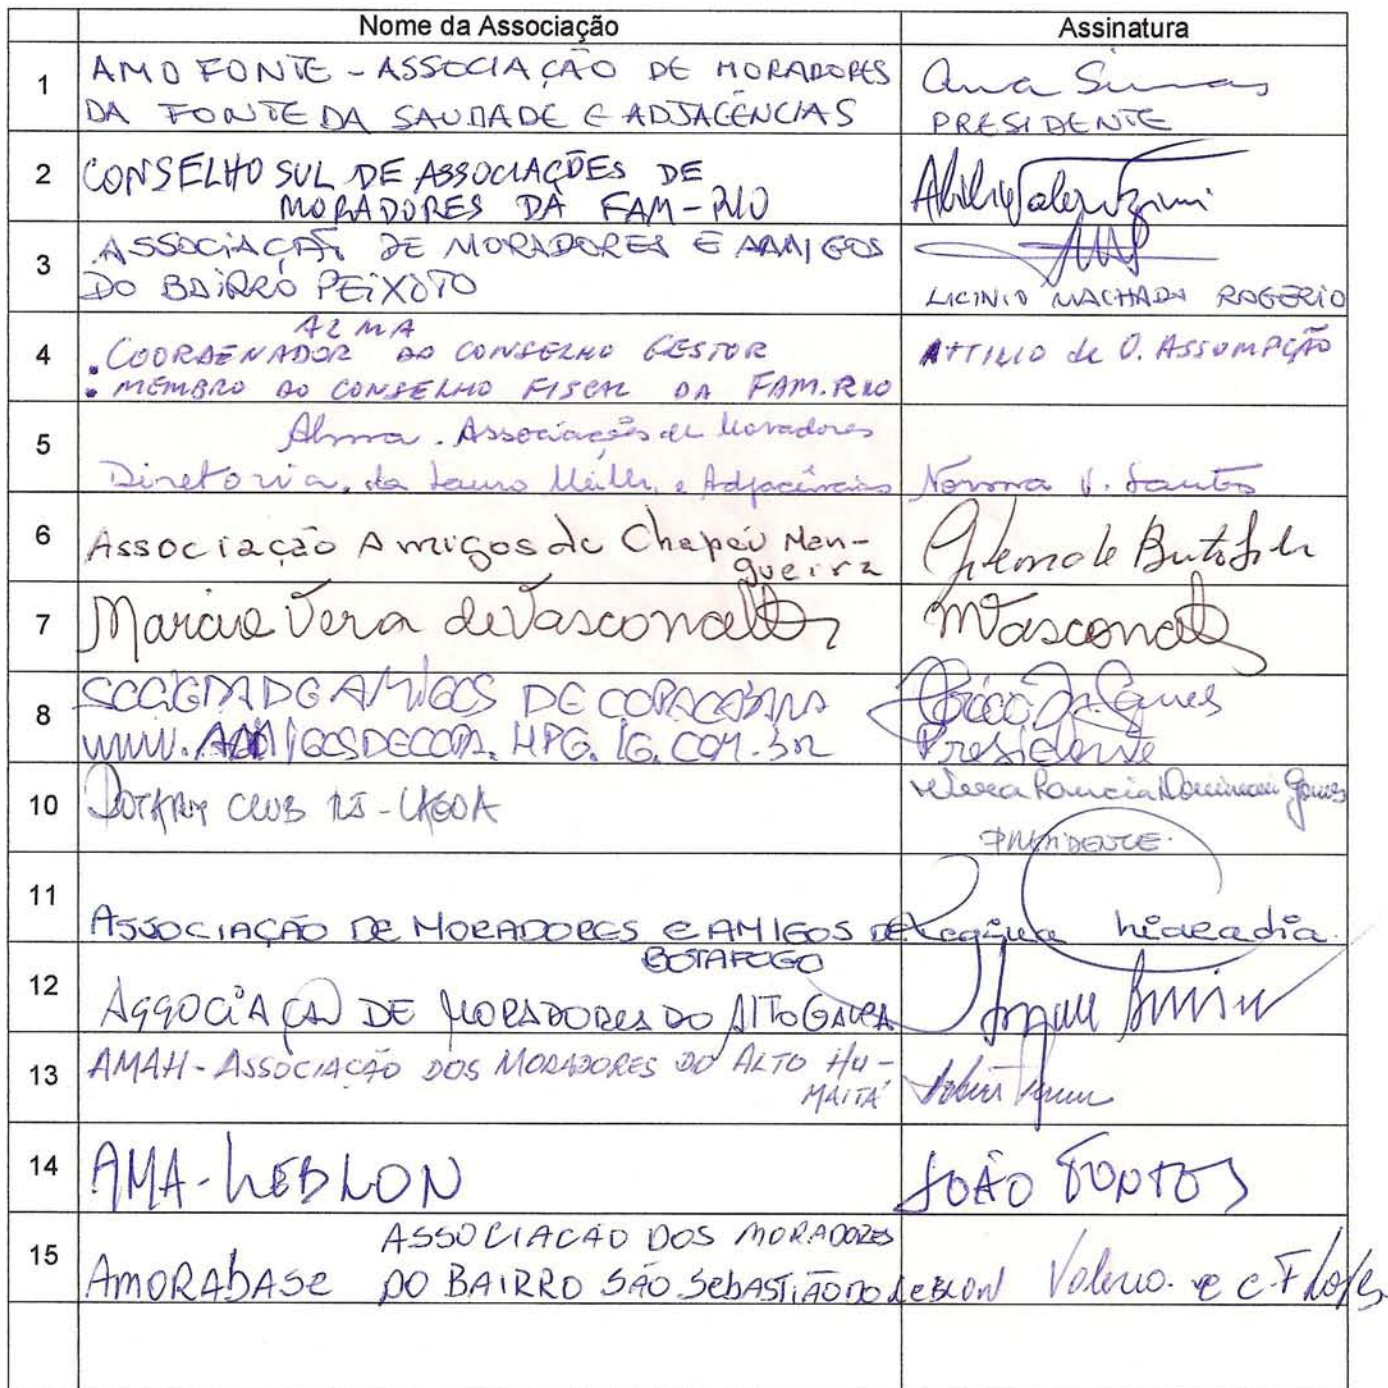 Nome da Associação Assinatura
1 AMO FONTE - ASSOCIAÇÃO DE MORADORES Ana Simas
DA FONTE DA SAUDADE E ADJACÊNCIAS PRESIDENTE
2 CONSELHO SUL DE ASSOCIAÇÕES DE
MORADORES DA FAM-RIO
3 ASSOCIAÇÃO DE MORADORES E AMIGOS
DO BAIRRO PEIXOTO LICINIO MACHADO ROGERIO
4 ALMA
. COORDENADOR DO CONSELHO GESTOR ATTILIO de O. ASSUMPÇÃO
. MEMBRO DO CONSELHO FISCAL DA FAM.RIO
5 Alma . Associação de Moradores
Diretoria, da Lauro Müller e Adjacências Norma V. Santos
6 Associação Amigos do Chapéu Man-
gueira
7 Marcia Vera de Vasconcellos MVasconcellos
8 SOCIEDADE AMIGOS DE COPACABANA
WWW.AMIGOSDECOPA.HPG.IG.COM.BR Presidente
10 ROTARY CLUB RJ-LAGOA
PRESIDENTE.
11
ASSOCIAÇÃO DE MORADORES E AMIGOS DE Regina Chiaradia.
BOTAFOGO
12 ASSOCIAÇÃO DE MORADORES DO ALTO GAVEA
13 AMAH - ASSOCIAÇÃO DOS MORADORES DO ALTO HU-
MAITÁ
14 AMA-LEBLON JOÃO FONTES
15 ASSOCIACÃO DOS MORADORES
AMORABASE DO BAIRRO SÃO SEBASTIÃO DO LEBLON